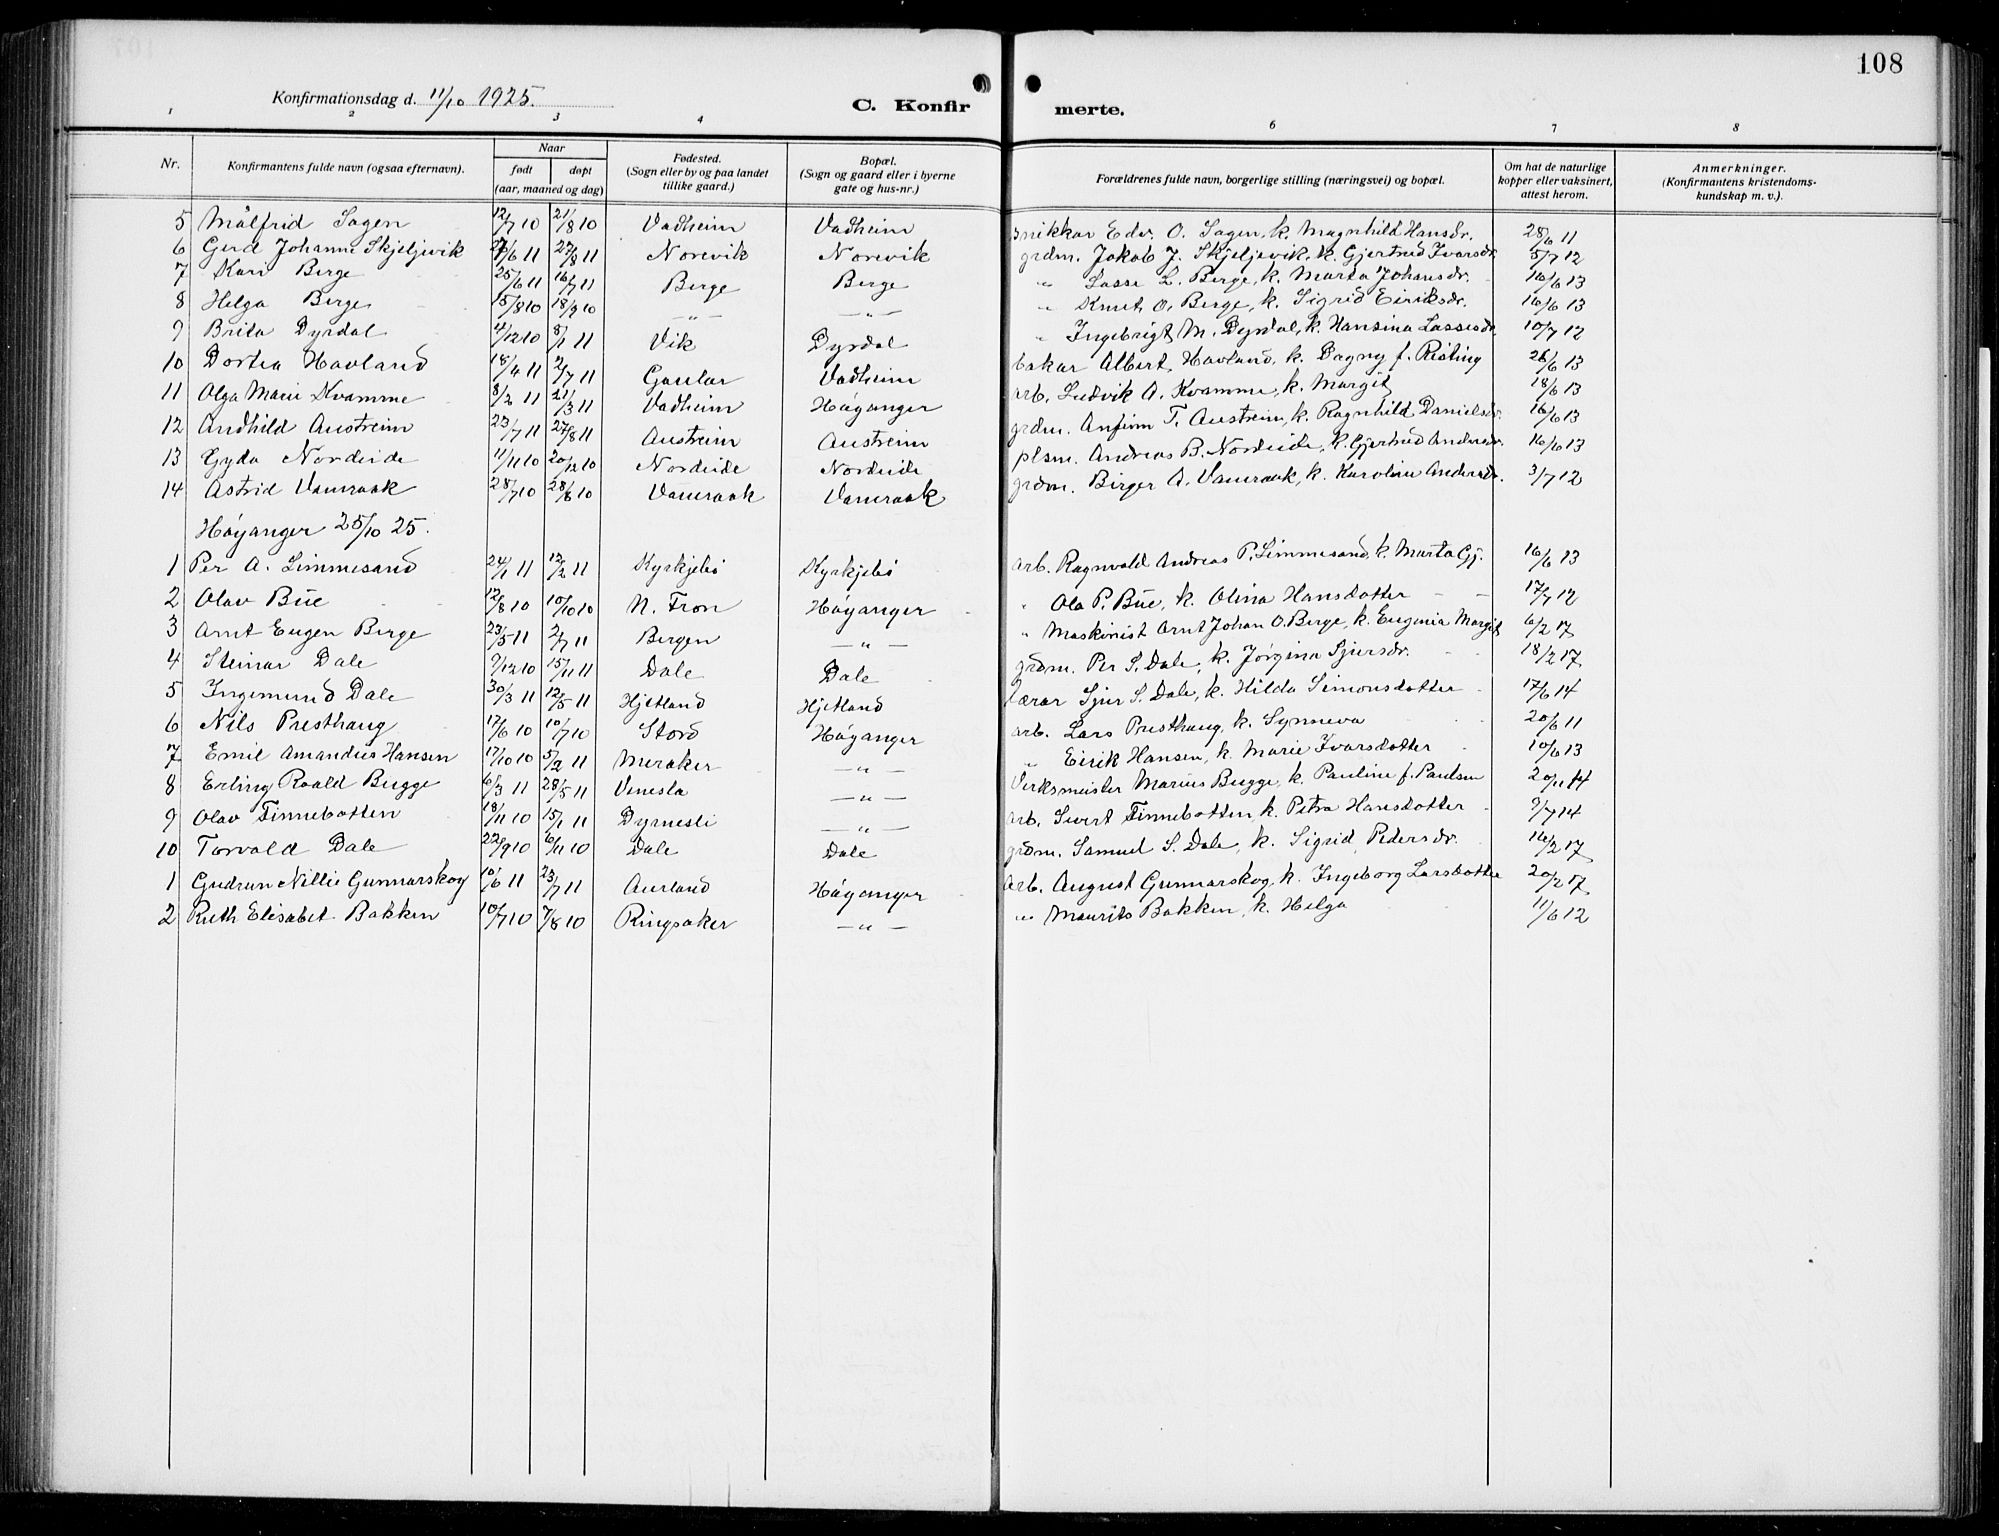 108
Konfirmationsdag d. 11/10 1925.
C. Konfirmerte.
1 2 3 4 6 7 8
Nr. Konfirmantens fulde navn (ogsaa efternavn). Naar født døpt (aar, maaned og dag) Fødested. (Sogn eller by og paa landet tillike gaard.) Bopæl. (Sogn og gaard eller i byerne gate og hus-nr.) Forældrenes fulde navn, borgerlige stilling (næringsvei) og bopæl. Om hat de naturlige kopper eller vaksinert, attest herom. Anmerkninger. (Konfirmantens kristendomskundskap m. v.).
5 Målfrid Sagen 12/7 10 21/8 10 Vadheim Vadheim Snikkar Edv. O. Sagen, k. Magnhild Hansdr. 28/6 11
6 Gerd Johanne Skjeljevik 27/6 11 27/8 11 Norevik Norevik grdm. Jakob J. Skjeljevik, k. Gjertrud Ivarsdr. 5/7 12
7 Kari Berge 25/6 11 16/7 11 Berge Berge " Lasse L. Berge, k. Marta Johansdr. 16/6 13
8 Helga Berge 15/8 10 18/9 10 — " — — " — " Knut O. Berge, k. Sigrid Eiriksdr. 16/6 13
9 Brita Dyrdal 4/12 10 8/1 11 Vik Dyrdal " Ingebrigt M. Dyrdal, k. Hansina Lassesdr. 10/7 12
10 Dortea Havland 18/4 11 2/7 11 Gaular Vadheim bakar Albert Havland, k. Dagny f. Risting 26/6 13
11 Olga Marie Kvamme 8/2 11 21/3 11 Vadheim Høyanger arb. Ludvik A. Kvamme, k. Margit 18/6 13
12 Andhild Austreim 23/7 11 27/8 11 Austreim Austreim grdm. Anfinn T. Austreim, k. Ragnhild Danielsdr. 16/6 13
13 Gyda Nordeide 11/11 10 20/12 10 Nordeide Nordeide plsm. Andreas B. Nordeide, k. Gjertrud Andersdr. 16/6 13
14 Astrid Vamraak 28/7 10 28/8 10 Vamraak Vamraak grdm. Birger A. Vamraak, k. Karoline Andersdr. 3/7 12
Høyanger 25/10 25.
1 Per A. Simmesand 24/1 11 12/2 11 Kyrkjebø Kyrkjebø arb. Ragnvald Andreas P. Simmesand, k. Marta Gj. 16/6 13
2 Olav Bue 12/8 10 10/10 10 N. Fron Høyanger " Ola P. Bue, k. Olina Hansdotter 17/7 12
3 Arnt Eugen Berge 23/5 11 2/7 11 Bergen — " — " Maskinist Arnt Johan O. Berge, k. Eugenia Margit 6/2 17
4 Steinar Dale 9/12 10 15/11 11 Dale Dale grdm. Per S. Dale, k. Jørgina Sjursdr. 18/2 17
5 Ingemund Dale 30/3 11 12/5 11 Hjetland Hjetland lærar Sjur S. Dale, k. Hilda Simonsdotter 17/6 14
6 Nils Presthaug 17/6 10 10/7 10 Stord Høyanger arb. Lars Presthaug, k. Synneva 20/6 11
7 Emil Amandus Hansen 17/10 10 5/2 11 Meraker — " — " Eirik Hansen, k. Marie Ivarsdotter 10/6 13
8 Erling Roald Bugge 6/3 11 28/5 11 Venesla — " — Verksmeister Marius Bugge, k. Pauline f. Paulsen 20/11 14
9 Olav Finnebotten 18/11 10 15/1 11 Dyrnesli — " — arb. Sivert Finnebotten, k. Petra Hansdotter 9/7 14
10 Torvald Dale 22/9 10 6/11 10 Dale Dale grdm. Samuel S. Dale, k. Sigrid Pedersdr. 16/2 17
1 Gudrun Nillie Gunnarskog 10/6 11 23/7 11 Aurland Høyanger Arb. August Gunnarskog, k. Ingeborg Larsdotter 20/2 17
2 Ruth Elisabet Bakken 10/7 10 7/8 10 Ringsaker — " — " Maurits Bakken, k. Helga 11/6 12